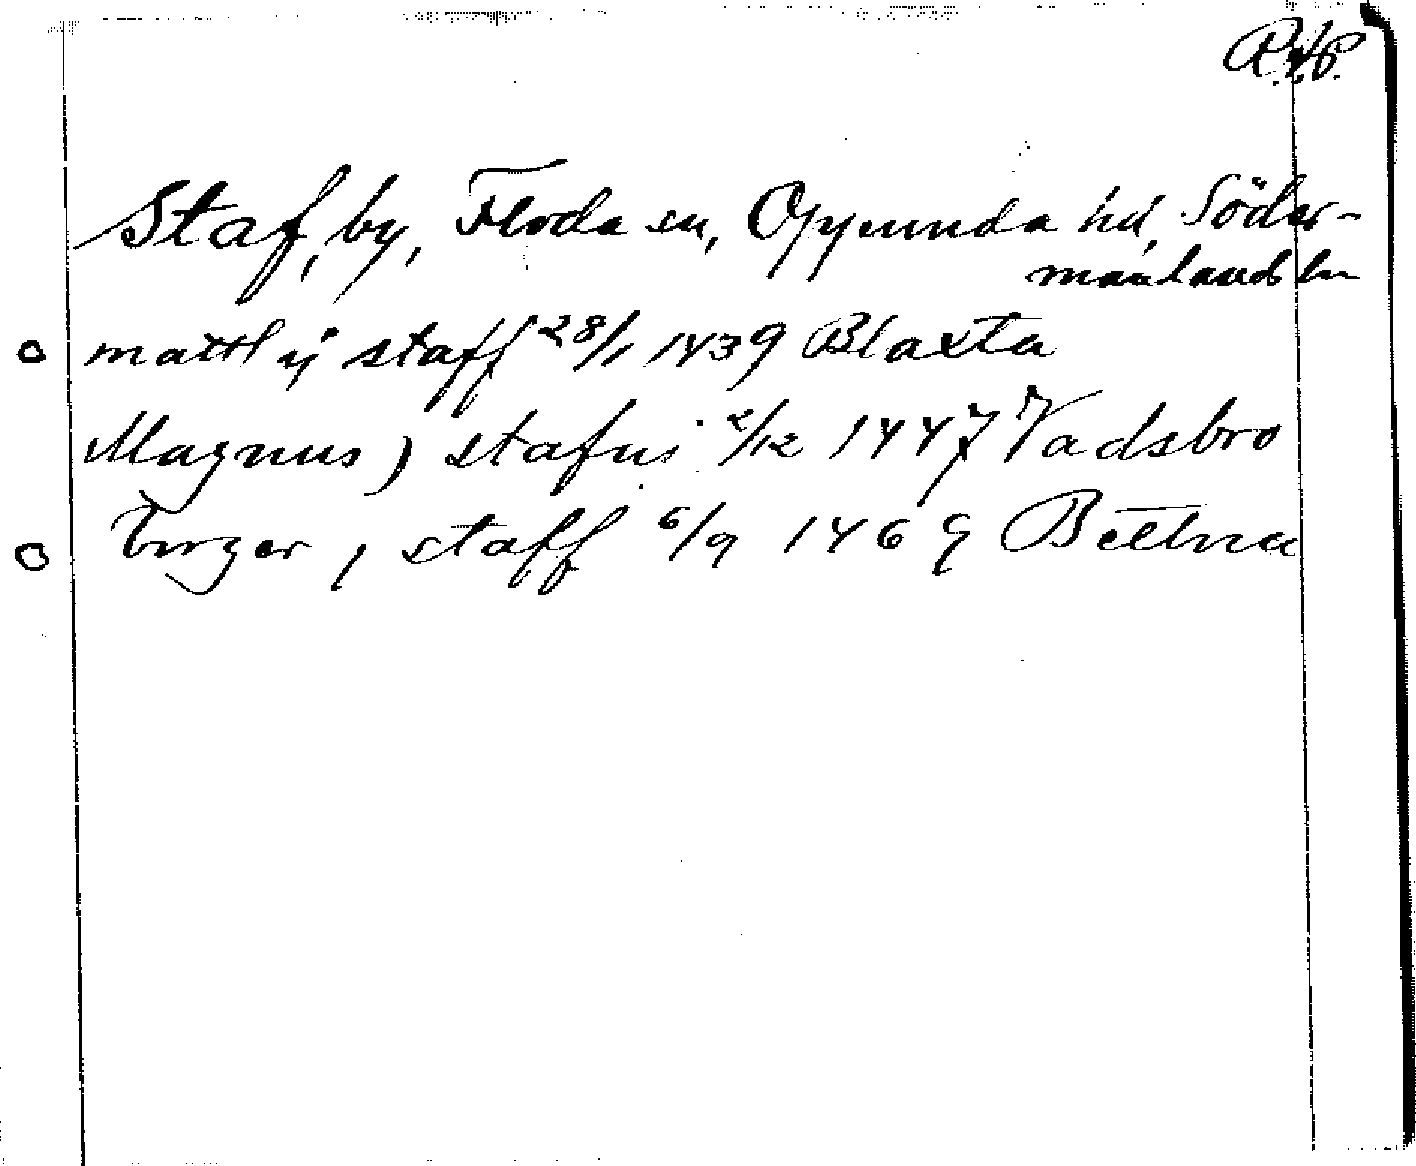 R.A.P.
Staf, by, Floda sn, Oppunda hd, Söder-
manlands län
mattl ij staff 28/1 1439 Blaxta
Magnus j stafui 2/12 1447 Vadsbro
birger j staff 6/9 1469 Bettna